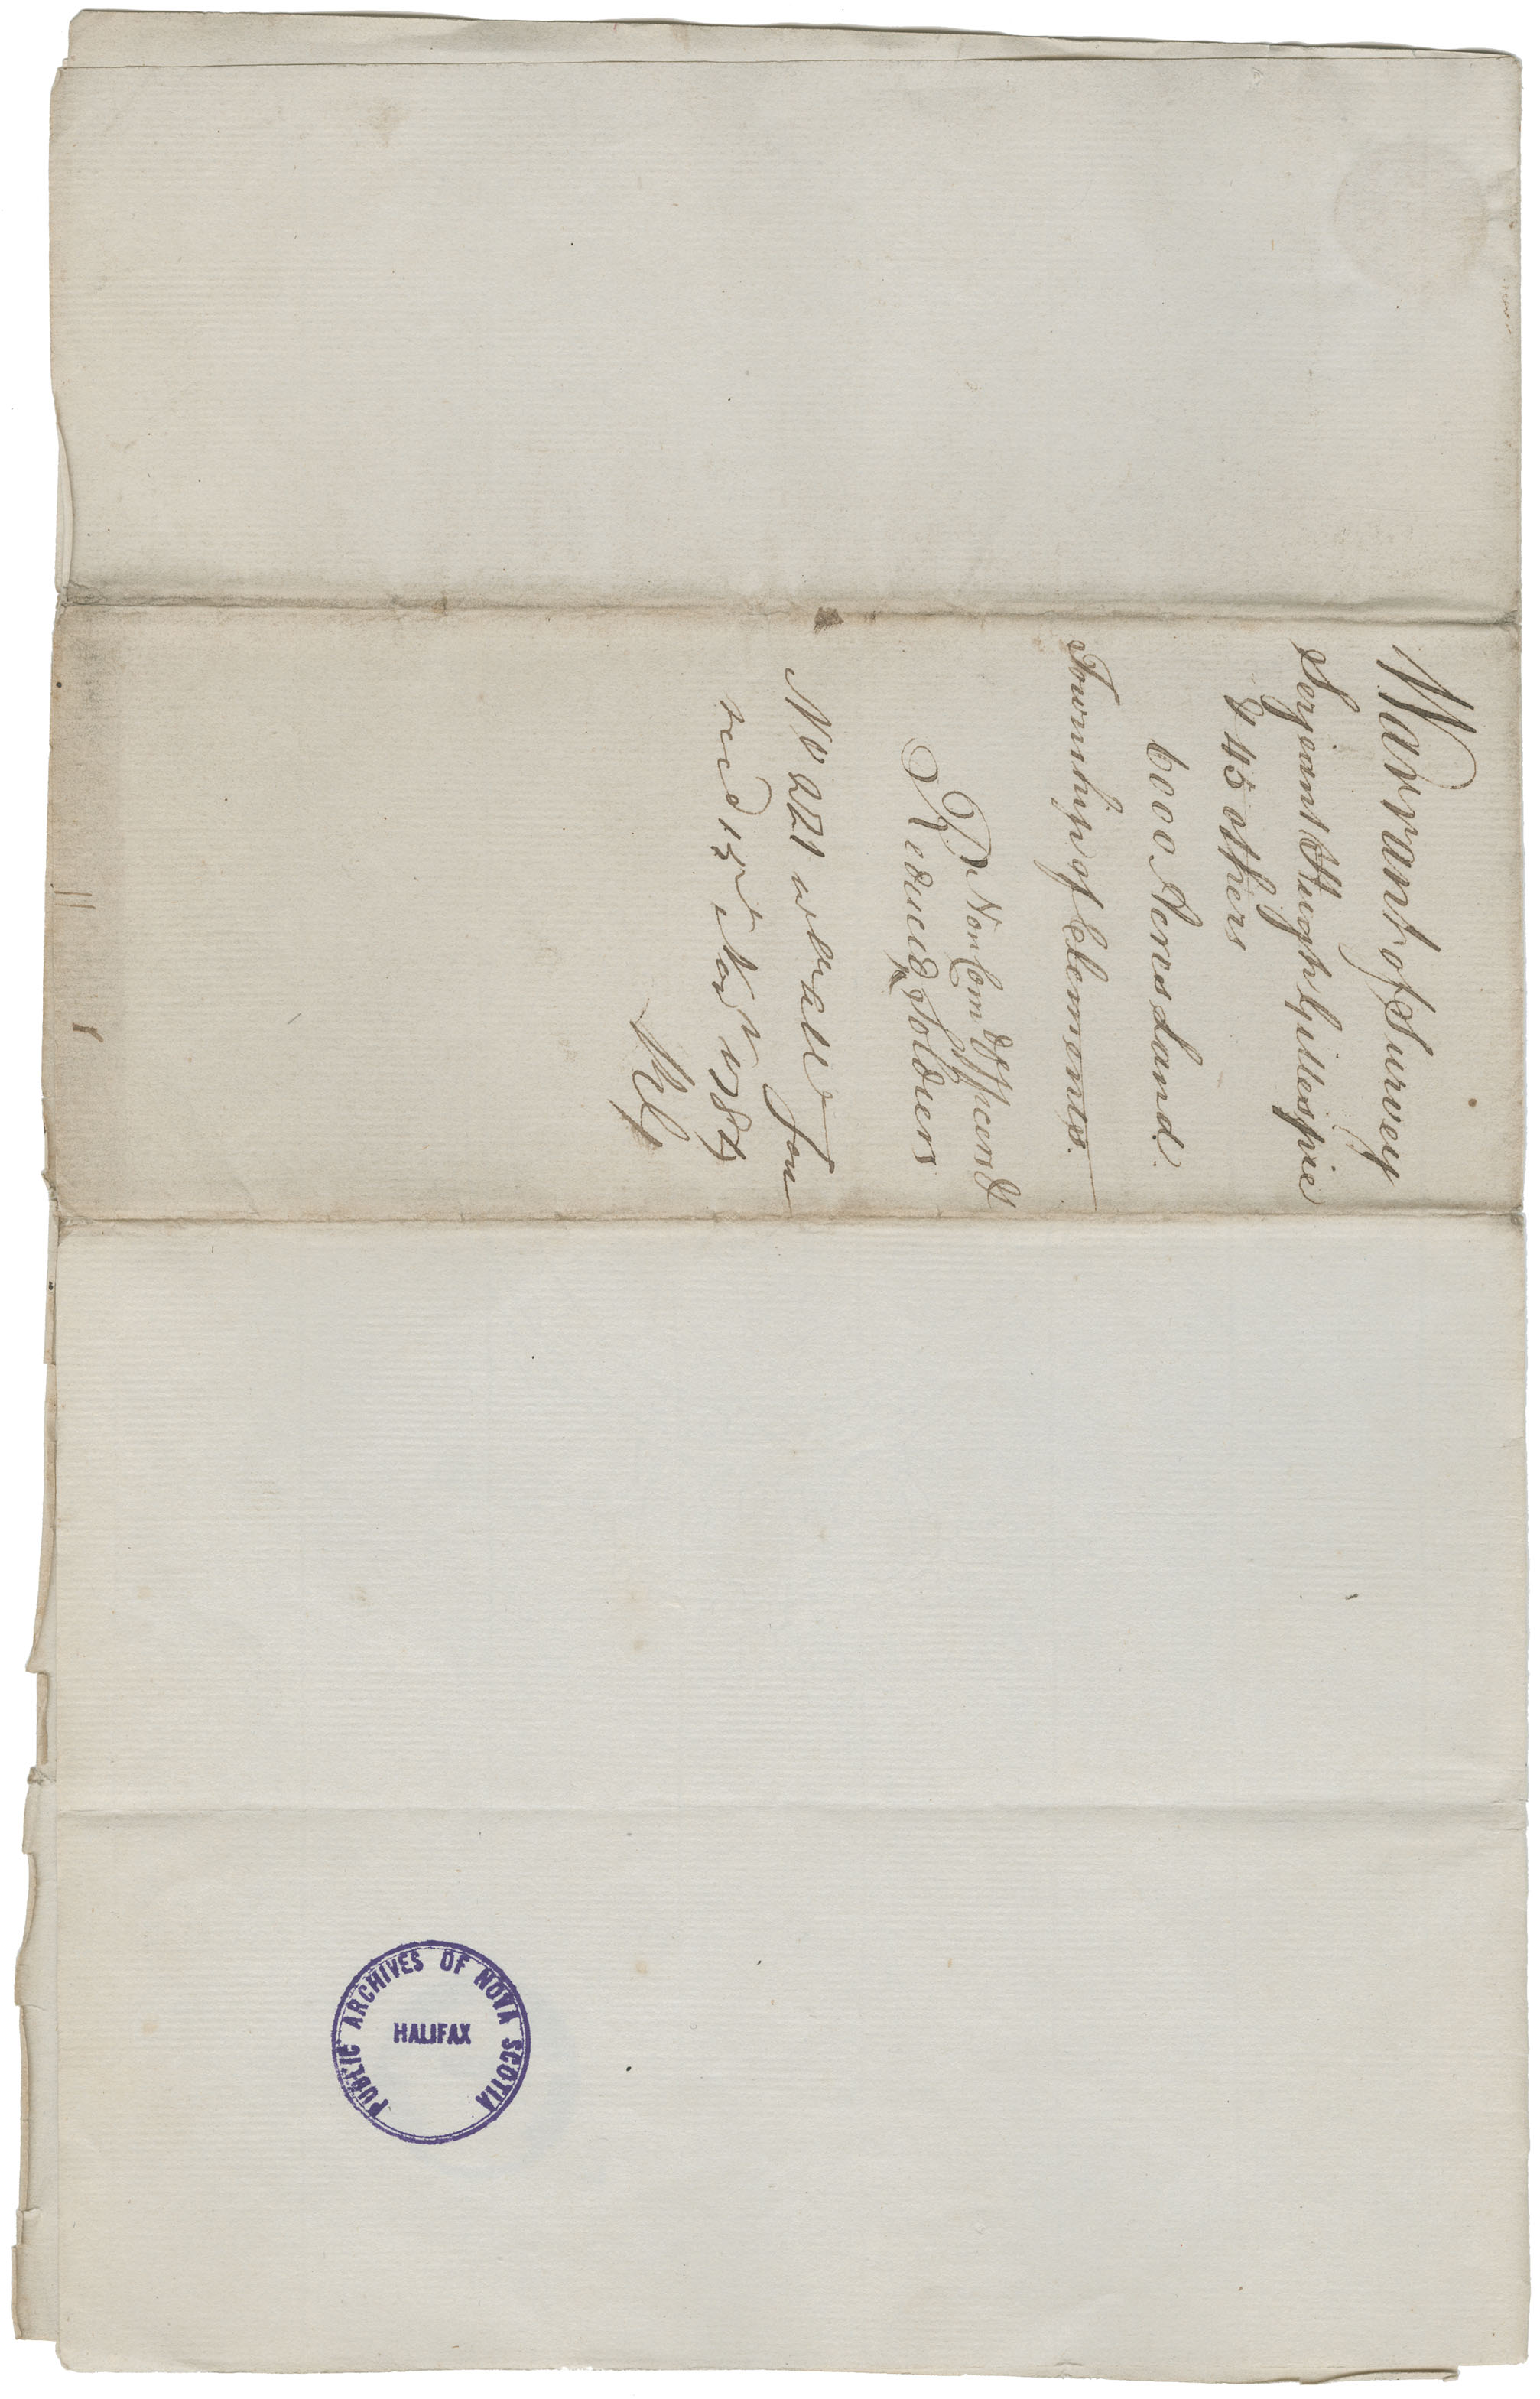 Warrant of Survey
Serjeant Hugh Gillespie
& 45 others
6000 Acres Land.
Township of Clements.
Non Com Officers &
Reduced ^ Soldiers
No 221
recd 15 Nov 1784
PUBLIC ARCHIVES OF NOVA SCOTIA
HALIFAX